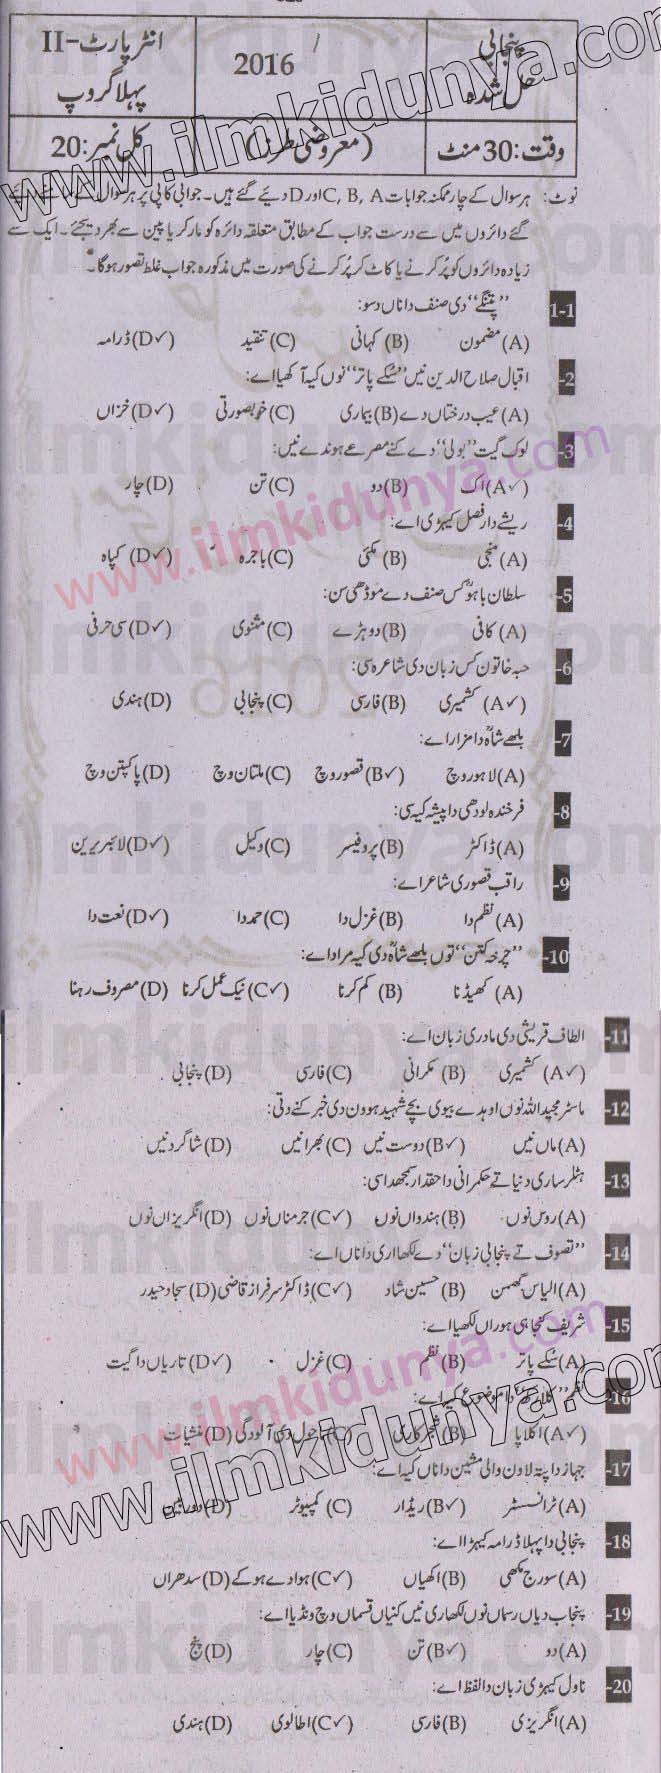 پنجابی
حل شدہ
2016
انٹر پارٹ-II
پہلا گروپ
وقت:30 منٹ
(معروضی طرز)
کل نمبر:20
نوٹ: ہر سوال کے چار ممکنہ جوابات C, B, A اور D دیئے گئے ہیں۔ جوابی کاپی پر ہر سوال کے سامنے دیئے
گئے دائروں میں سے درست جواب کے مطابق متعلقہ دائرہ کو مارکر یا پین سے بھر دیجئے۔ ایک سے
زیادہ دائروں کو پُر کرنے یا کاٹ کر پُر کرنے کی صورت میں مذکورہ جواب غلط تصور ہوگا۔
1-1 ’’پتنگے‘‘ دی صنف دا ناں دسو:
(A) مضمون (B) کہانی (C) تنقید (D✓) ڈرامہ
2- اقبال صلاح الدین نیں ’’سُکے پاتر‘‘ نوں کیہ آکھیا اے:
(A) عیب درختاں دے (B) بیماری (C) خوبصورتی (D✓) خزاں
3- لوک گیت ’’بولی‘‘ دے کنے مصرعے ہوندے نیں:
(A✓) اک (B) دو (C) تن (D) چار
4- ریشے دار فصل کیہڑی اے:
(A) منجی (B) مکئی (C) باجرہ (D✓) کپاہ
5- سلطان باہوؒ کس صنف دے موڈھی سن:
(A) کافی (B) دوہڑے (C) مثنوی (D✓) سی حرفی
6- حبہ خاتون کس زبان دی شاعرہ سی:
(A✓) کشمیری (B) فارسی (C) پنجابی (D) ہندی
7- بلھے شاہؒ دا مزار اے:
(A) لاہور وچ (B✓) قصور وچ (C) ملتان وچ (D) پاکپتن وچ
8- فرخندہ لودھی دا پیشہ کیہ سی:
(A) ڈاکٹر (B) پروفیسر (C) وکیل (D✓) لائبریرین
9- راقب قصوری شاعر اے:
(A) نظم دا (B) غزل دا (C) حمد دا (D✓) نعت دا
10- ’’چرخہ کتن‘‘ توں بلھے شاہؒ دی کیہ مراد اے:
(A) کھیڈنا (B) کم کرنا (C✓) نیک عمل کرنا (D) مصروف رہنا
11- الطاف قریشی دی مادری زبان اے:
(A✓) کشمیری (B) مکرانی (C) فارسی (D) پنجابی
12- ماسٹر مجید اللہ نوں اوہدے بیوی بچے شہید ہوون دی خبر کنے دتی:
(A) ماں نیں (B✓) دوست نیں (C) بھرا نیں (D) شاگرد نیں
13- ہٹلر ساری دنیا تے حکمرانی دا حقدار سمجھدا سی:
(A) روس نوں (B) ہندواں نوں (C✓) جرمناں نوں (D) انگریزاں نوں
14- ’’تصوف تے پنجابی زبان‘‘ دے لکھاری دا ناں اے:
(A) الیاس گھمن (B) حسین شاد (C✓) ڈاکٹر سرفراز قاضی (D) سجاد حیدر
15- شریف کنجاہی ہوراں لکھیا اے:
(A) سُکے پاتر (B) نظم (C) غزل (D✓) تاریاں دا گیت
16- نظم دا موضوع کیہ اے:
(A✓) اکلاپا (B) شجرکاری (C) ماحول دی آلودگی (D) منشیات
17- جہاز دا پتہ لاون والی مشین دا ناں کیہ اے:
(A) ٹرانسسٹر (B✓) ریڈار (C) کمپیوٹر (D) دوربین
18- پنجابی دا پہلا ڈرامہ کیہڑا اے:
(A) سورج مکھی (B) اکھیاں (C✓) ہوا دے ہوکے (D) سدھراں
19- پنجاب دیاں رسماں نوں لکھاری نیں کنیاں قسماں وچ ونڈیا اے:
(A) دو (B✓) تن (C) چار (D) پنج
20- ناول کیہڑی زبان دا لفظ اے:
(A) انگریزی (B) فارسی (C✓) اطالوی (D) ہندی
www.ilmkidunya.com